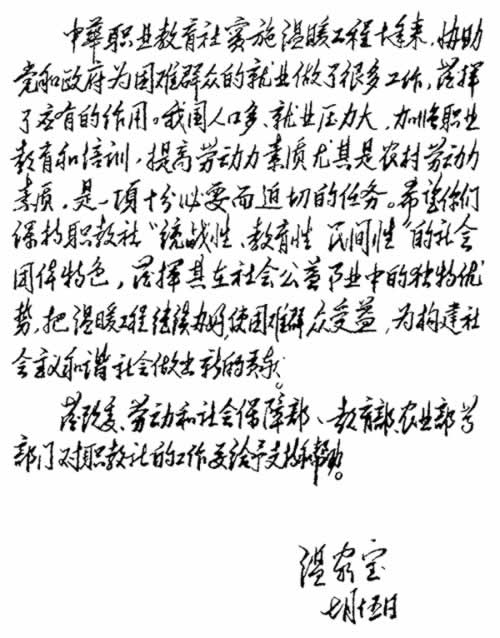 中华职业教育社实施温暖工程十年来，协助
党和政府为困难群众的就业做了很多工作，发挥
了应有的作用。我国人口多、就业压力大，加强职业
教育和培训，提高劳动力素质尤其是农村劳动力
素质，是一项十分必要而迫切的任务。希望你们
保持职教社“统战性、教育性、民间性”的社会
团体特色，发挥其在社会公益事业中的独特优
势，把温暖工程继续办好，使困难群众受益，为构建社
会主义和谐社会做出新的贡献。
发改委、劳动和社会保障部、教育部、农业部等
部门对职教社的工作要给予支持和帮助。
温家宝
七月十五日